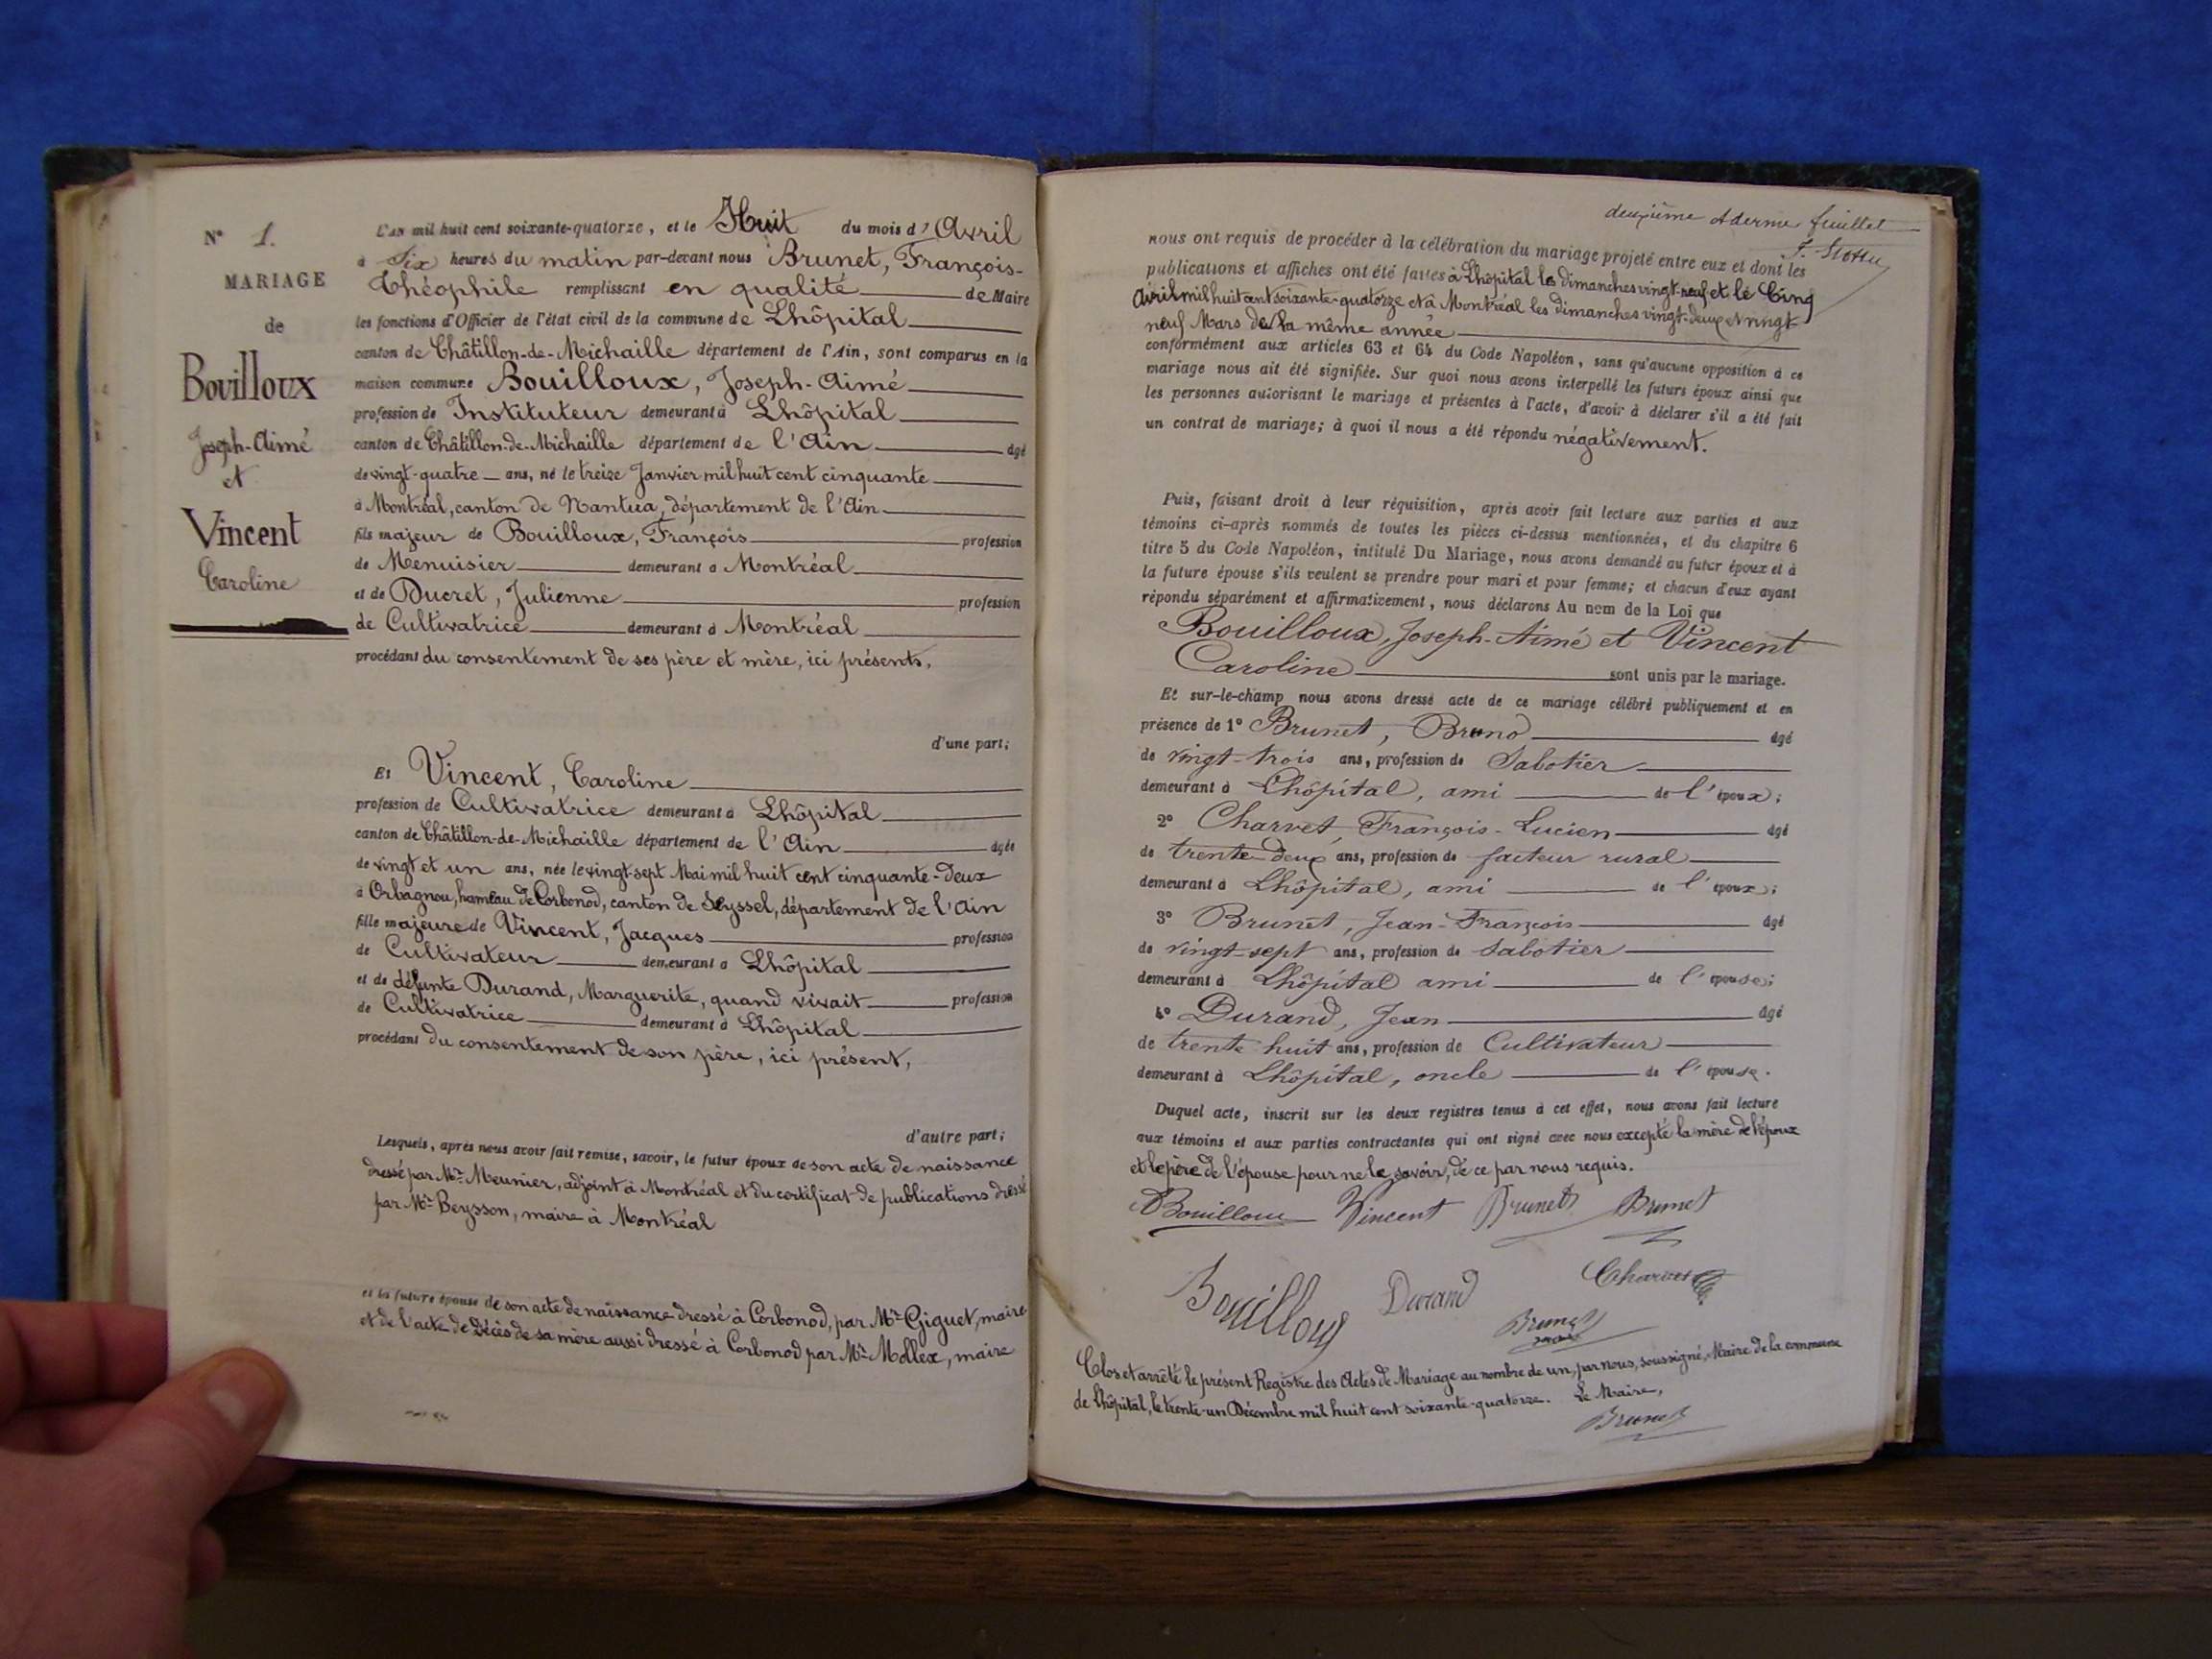 N° 1.
MARIAGE
de
Bouilloux
Joseph-Aimé
et
Vincent
Caroline
L'AN mil huit cent soixante-quatorze, et le Huit du mois d'Avril
à Six heures du matin par-devant nous Brunet, François-
Théophile remplissant en qualité de Maire
les fonctions d'Officier de l'état civil de la commune de Lhôpital
canton de Châtillon-de-Michaille département de l'Ain, sont comparus en la
maison commune Bouilloux, Joseph-Aimé
profession de Instituteur demeurant à Lhôpital
canton de Châtillon-de-Michaille département de l'Ain âgé
de vingt-quatre ans, né le treize Janvier mil huit cent cinquante
à Montréal, canton de Nantua, département de l'Ain
fils majeur de Bouilloux, François profession
de Menuisier demeurant à Montréal
et de Ducret, Julienne profession
de Cultivatrice demeurant à Montréal
procédant du consentement de ses père et mère, ici présents,
d'une part;
Et Vincent, Caroline
profession de Cultivatrice demeurant à Lhôpital
canton de Châtillon-de-Michaille département de l'Ain âgée
de vingt et un ans, née le vingt-sept Mai mil huit cent cinquante-deux
à Orbagnou, hameau de Corbonod, canton de Seyssel, département de l'Ain
fille majeure de Vincent, Jacques profession
de Cultivateur demeurant à Lhôpital
et de défunte Durand, Marguerite, quand vivait profession
de Cultivatrice demeurant à Lhôpital
procédant du consentement de son père, ici présent,
d'autre part;
Lesquels, après nous avoir fait remise, savoir, le futur époux de son acte de naissance
dressé par Mr. Meunier, adjoint à Montréal et du certificat de publications dressé
par Mr. Beysson, maire à Montréal
et la future épouse de son acte de naissance dressé à Corbonod, par Mr. Giguet, maire
et de l'acte de Décès de sa mère aussi dressé à Corbonod par Mr. Mollex, maire
deuxième feuillet
nous ont requis de procéder à la célébration du mariage projeté entre eux et dont les
publications et affiches ont été faites à Lhôpital les dimanches vingt-neuf et le Cinq
Avril mil huit cent soixante-quatorze et à Montréal les dimanches vingt-deux et vingt-
neuf Mars de la même année
conformément aux articles 63 et 64 du Code Napoléon, sans qu'aucune opposition à ce
mariage nous ait été signifiée. Sur quoi nous avons interpellé les futurs époux ainsi que
les personnes autorisant le mariage et présentes à l'acte, d'avoir à déclarer s'il a été fait
un contrat de mariage; à quoi il nous a été répondu négativement.
Puis, faisant droit à leur réquisition, après avoir fait lecture aux parties et aux
témoins ci-après nommés de toutes les pièces ci-dessus mentionnées, et du chapitre 6
titre 5 du Code Napoléon, intitulé Du Mariage, nous avons demandé au futur époux et à
la future épouse s'ils veulent se prendre pour mari et pour femme; et chacun d'eux ayant
répondu séparément et affirmativement, nous déclarons Au nom de la Loi que
Bouilloux, Joseph-Aimé et Vincent
Caroline sont unis par le mariage.
Et sur-le-champ nous avons dressé acte de ce mariage célébré publiquement et en
présence de 1° Brunet, Bruno âgé
de vingt-trois ans, profession de Sabotier
demeurant à Lhôpital, ami de l'époux;
2° Charvet, François-Lucien âgé
de trente-deux ans, profession de facteur rural
demeurant à Lhôpital, ami de l'époux;
3° Brunet, Jean-François âgé
de vingt-sept ans, profession de Sabotier
demeurant à Lhôpital ami de l'épouse;
4° Durand, Jean âgé
de trente huit ans, profession de Cultivateur
demeurant à Lhôpital, oncle de l'épouse.
Duquel acte, inscrit sur les deux registres tenus à cet effet, nous avons fait lecture
aux témoins et aux parties contractantes qui ont signé avec nous excepté la mère de l'époux
et le père de l'épouse pour ne le savoir, de ce par nous requis.
Bouilloux Vincent Brunet Brunet
Bouilloux Durand Charvet
Brunet
Clos et arrêté le présent Registre des Actes de Mariage au nombre de un, par nous, soussigné, Maire de la commune
de Lhôpital, le trente-un Décembre mil huit cent soixante-quatorze. Le Maire,
Brunet